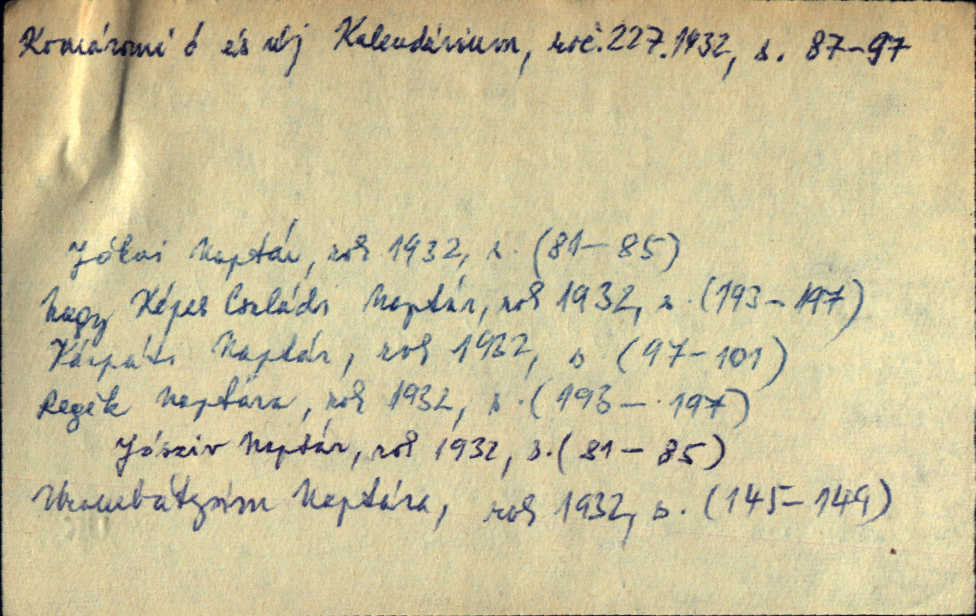 Komáromi ó és uj Kalendárium, roč. 227. 1932, s. 87-97
Jókai Naptár, rok 1932, s. (81-85)
Nagy Képes Családi Naptár, rok 1932, s. (193-197)
Kárpáti Naptár, rok 1932, s (97-101)
Regék Naptára, rok 1932, s. (193-197)
Jósziv Naptár, rok 1932, s. (81-85)
Naptára, rok 1932, s. (145-149)